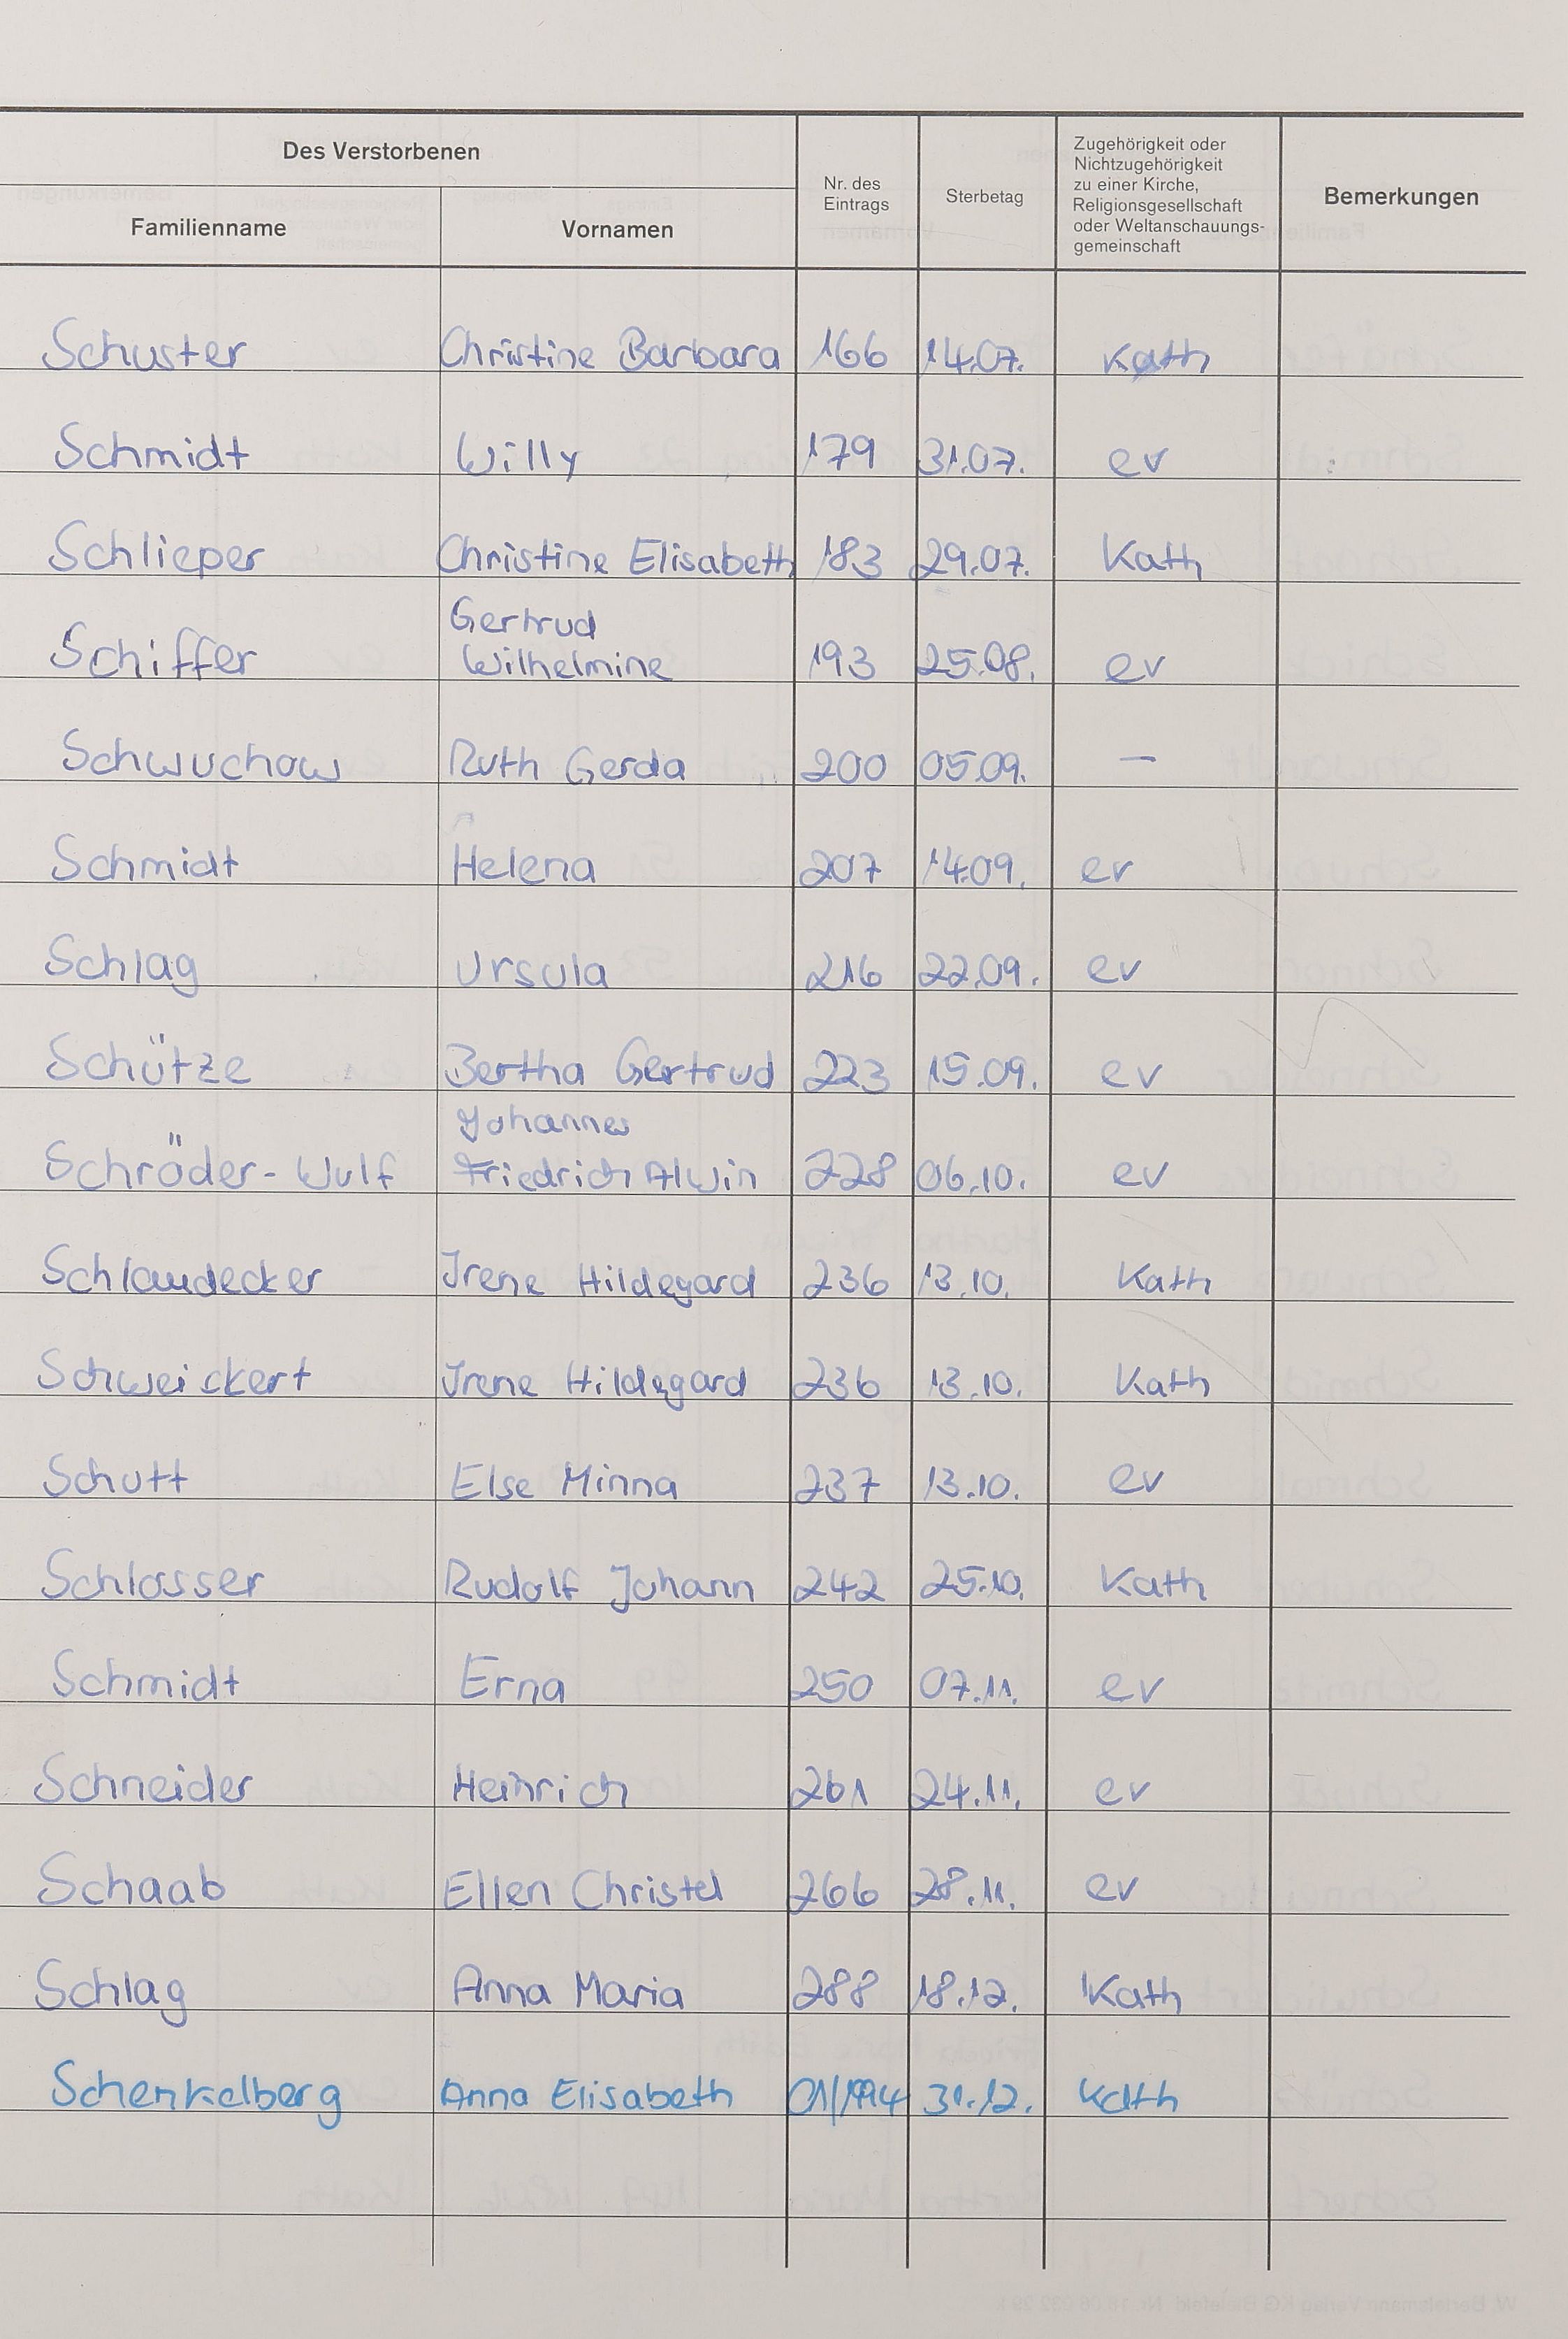 Des Verstorbenen
Familienname
Vornamen
Nr. des
Eintrags
Sterbetag
Zugehörigkeit oder
Nichtzugehörigkeit
zu einer Kirche,
Religionsgesellschaft
oder Weltanschauungs-
gemeinschaft
Bemerkungen
Schuster Christine Barbara 166 14.07. Kath
Schmidt Willy 179 31.07. ev
Schlieper Christine Elisabeth 183 29.07. Kath
Gertrud
Schiffer Wilhelmine 193 25.08. ev
Schwuchow Ruth Gerda 200 05.09. —
Schmidt Helena 207 14.09. ev
Schlag Ursula 216 22.09. ev
Schütze Bertha Gertrud 223 15.09. ev
Johannes
Schröder-Wulf Friedrich Alwin 228 06.10. ev
Schlaudecker Irene Hildegard 236 13.10. Kath
Schweickert Irene Hildegard 236 13.10. Kath
Schutt Else Minna 237 13.10. ev
Schlosser Rudolf Johann 242 25.10. Kath
Schmidt Erna 250 07.11. ev
Schneider Heinrich 261 24.11. ev
Schaab Ellen Christel 266 28.11. ev
Schlag Anna Maria 288 18.12. Kath
Schenkelberg Anna Elisabeth 01/1994 31.12. Kath